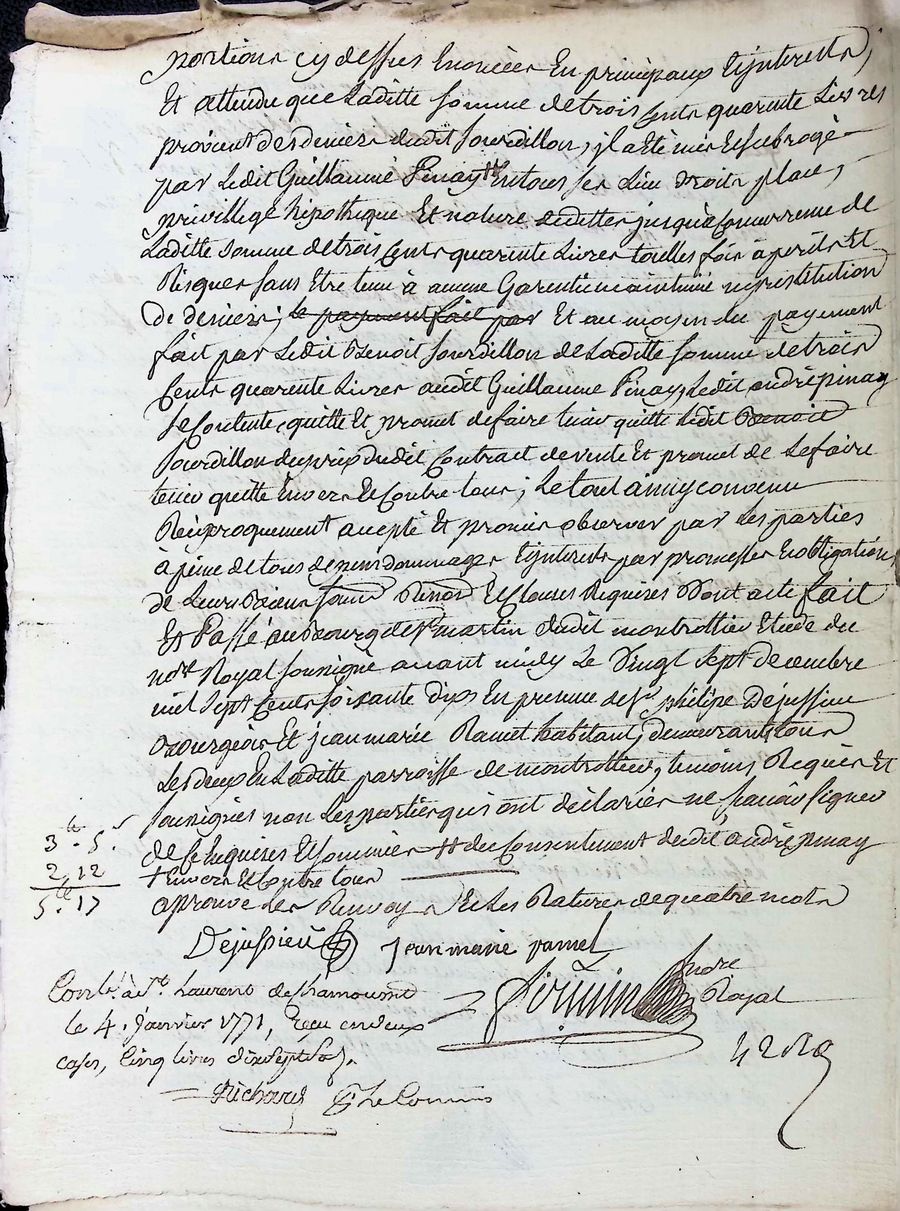 portions cy dessus Enoncées En principaux Et jnterests,
Et attendu que Laditte somme de trois Cents quarente Livres
provient des deniers dudit Jourdillon, jl a Eté mis Et subrogé
par Ledit Guillaume Pinay ++ En tous ses Lieu droits place,
privillege hipotheque Et nature de dettes jusqu'à Concurrense de
Laditte somme de trois Cents quarente Livres touttes fois à perils Et
Risques sans Etre tenu à aucune Garentie maintenüe ny restitution
de deniers; le payement fait par Et au moyen du payement
fait par Ledit Benoit Jourdillon de Laditte somme de trois
Cents quarente Livres audit Guillaume Pinay, Ledit andré pinay
se Contente, quitte Et promet de faire tenir quitte Ledit Benoit
Jourdillon du prix dudit Contract de vente Et promet de Le faire
tenir quitte Envers Et Contre tous; Le tout ainsy convenu
Reciproquement accepté Et promis observer par Les parties
à peine de tous depens dommages Et jnterests par promesses Et obligations
de Leurs Biens soum Renon Et Clauses Requises Dont acte fait
Et Passé au Bourg de St martin dudit montrottier Etude du
nore Royal soussigné avant midy Le Vingt sept decembre
mil sept Cents soixante dix En presence de sr philipe Dejussieu
Bourgeois Et jean marie Ramel habitant, demeurants tous
Les deux En Laditte parroisse de montrottier, temoins Requis Et
soussignés non Les parties qui ont déclarées ne sçavoir signer
de ce Enquises Et sommées ++ du Consentement dudit andré pinay
+ Envers Et Contre tous
aprouve Les Renvoys Et Les Ratures de quatre mots
3lt. 5s.
2, 12
5lt. 17
Dejussieu jean marie ramel
Contlé à St. Laurent de Chamousset
le 4. janvier 1771, Reçu en deux
cases, Cinq livres dix sept sols.
Richard Commis
nore
Royal